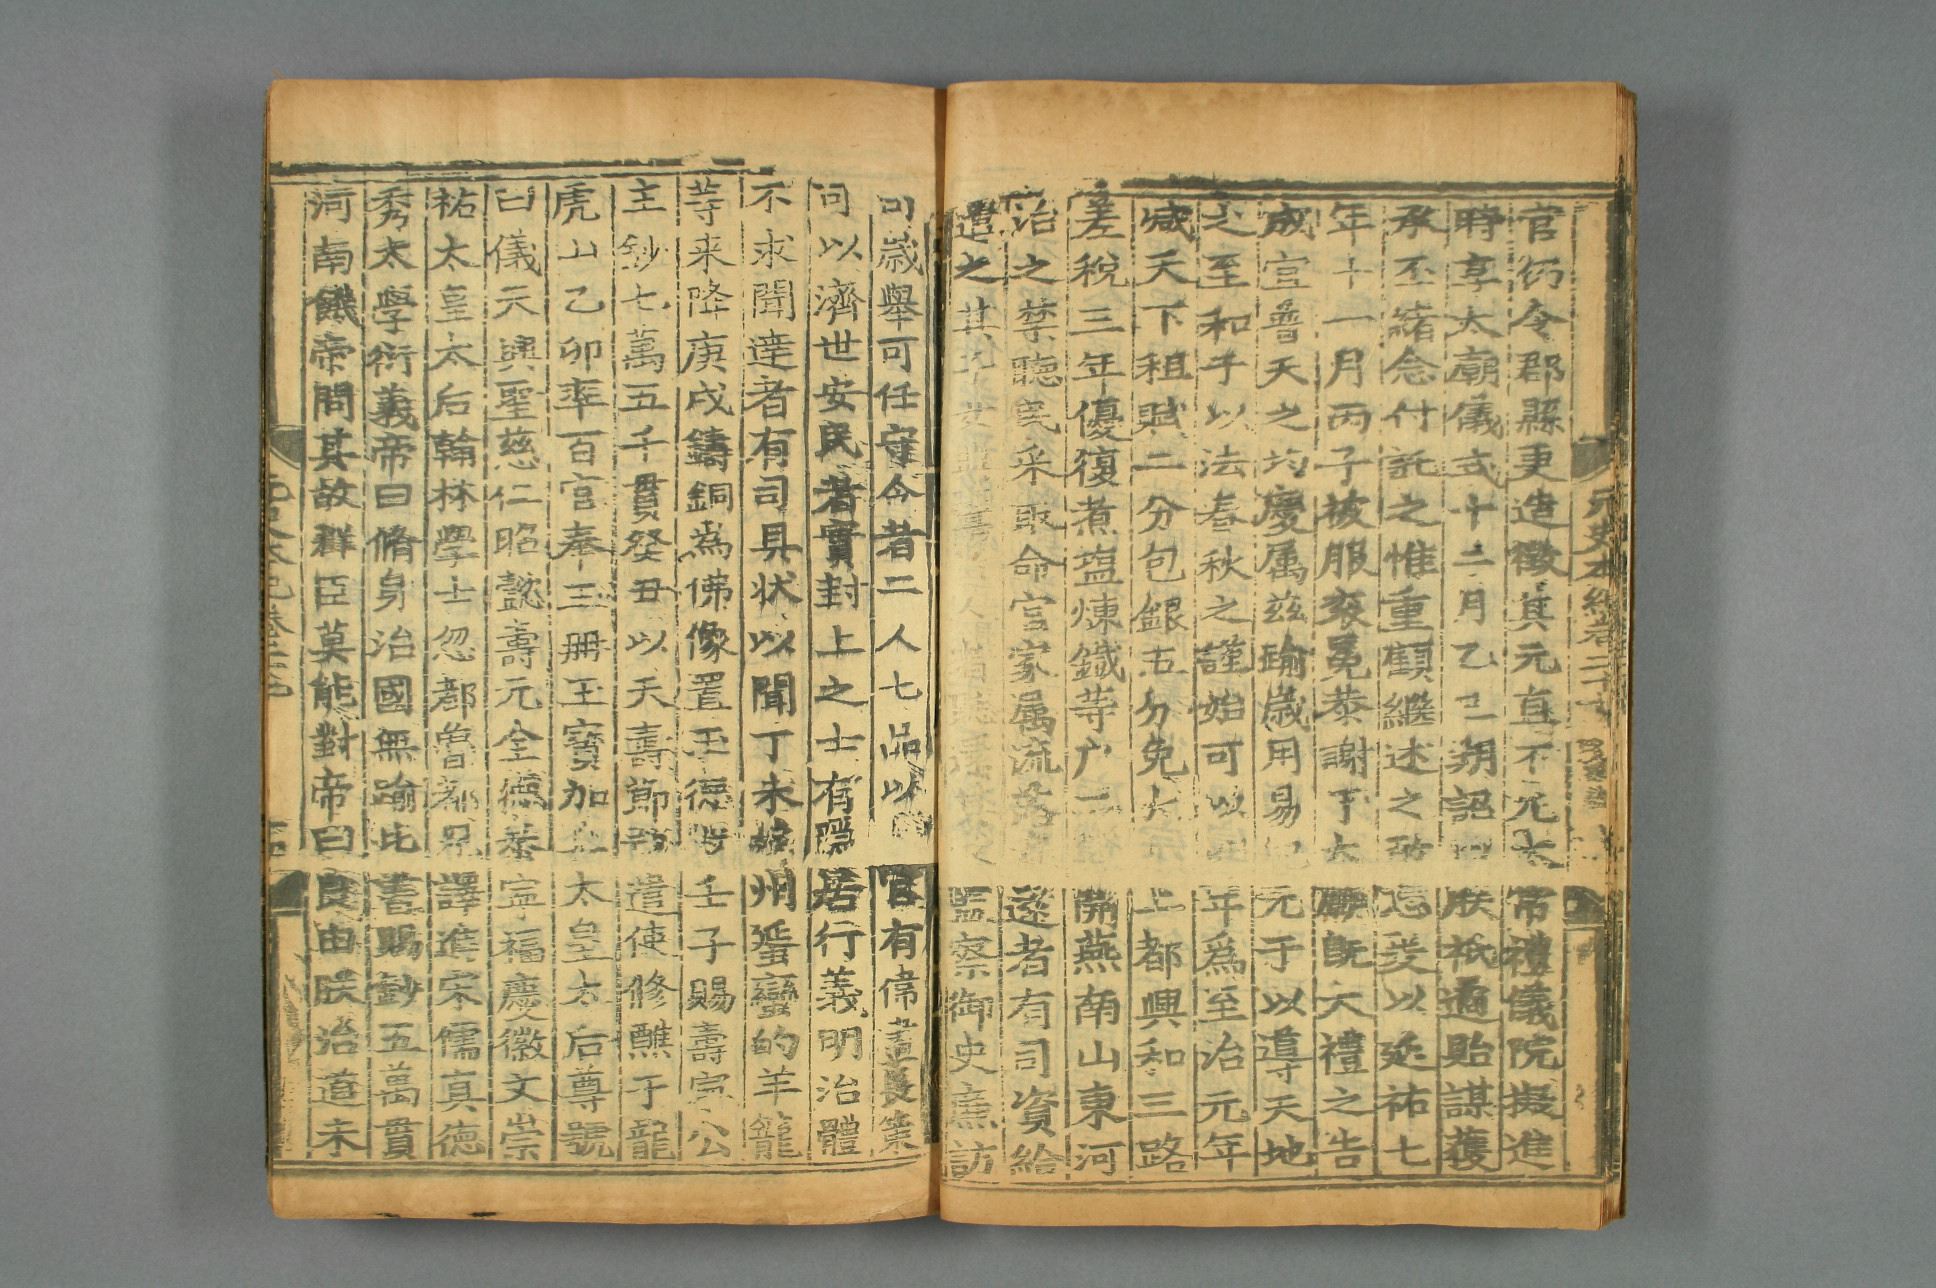 官仍令郡縣更造徵其元直不允太常禮儀院擬進
時享太廟儀式十二月乙巳朔詔曰朕祇遹貽謀獲
承丕緒念付託之惟重顧繼述之敢忘爰以延祐七
年十一月丙子被服衮冕恭謝于太廟既大禮之告
成宜普天之均慶属兹踰歲用易紀元于以導天地
之至和于以法春秋之謹始可以明年爲至治元年
减天下租賦二分包銀五分免大上都興和三路
差稅三年優復煮塩煉鐵等户二年開燕南山東河
治之禁聽民采取命官家属流落邊遠者有司資給
遣之其 監察御史廉訪
司歲舉可任守令者二人七品以上官有偉畫長策
可以濟世安民者實封上之士有隱居行義明治體
不求聞達者有司具状以聞丁未播州蜑蠻的羊籠
等来降庚戌鑄銅為佛像置玉德殿壬子賜壽寧公
主鈔七萬五千貫癸丑以天壽節預遣使修醮于龍
虎山乙卯率百官奉玉册玉寶加上太皇太后尊號
曰儀天興聖慈仁昭懿壽元全德泰寧福慶徽文崇
祐太皇太后翰林學士忽都魯都兒譯進宋儒真德
秀大學衍義帝曰脩身治國無踰此書賜鈔五萬貫
河南饑帝問其故群臣莫能對帝曰良由朕治道未
元史本紀卷二十七